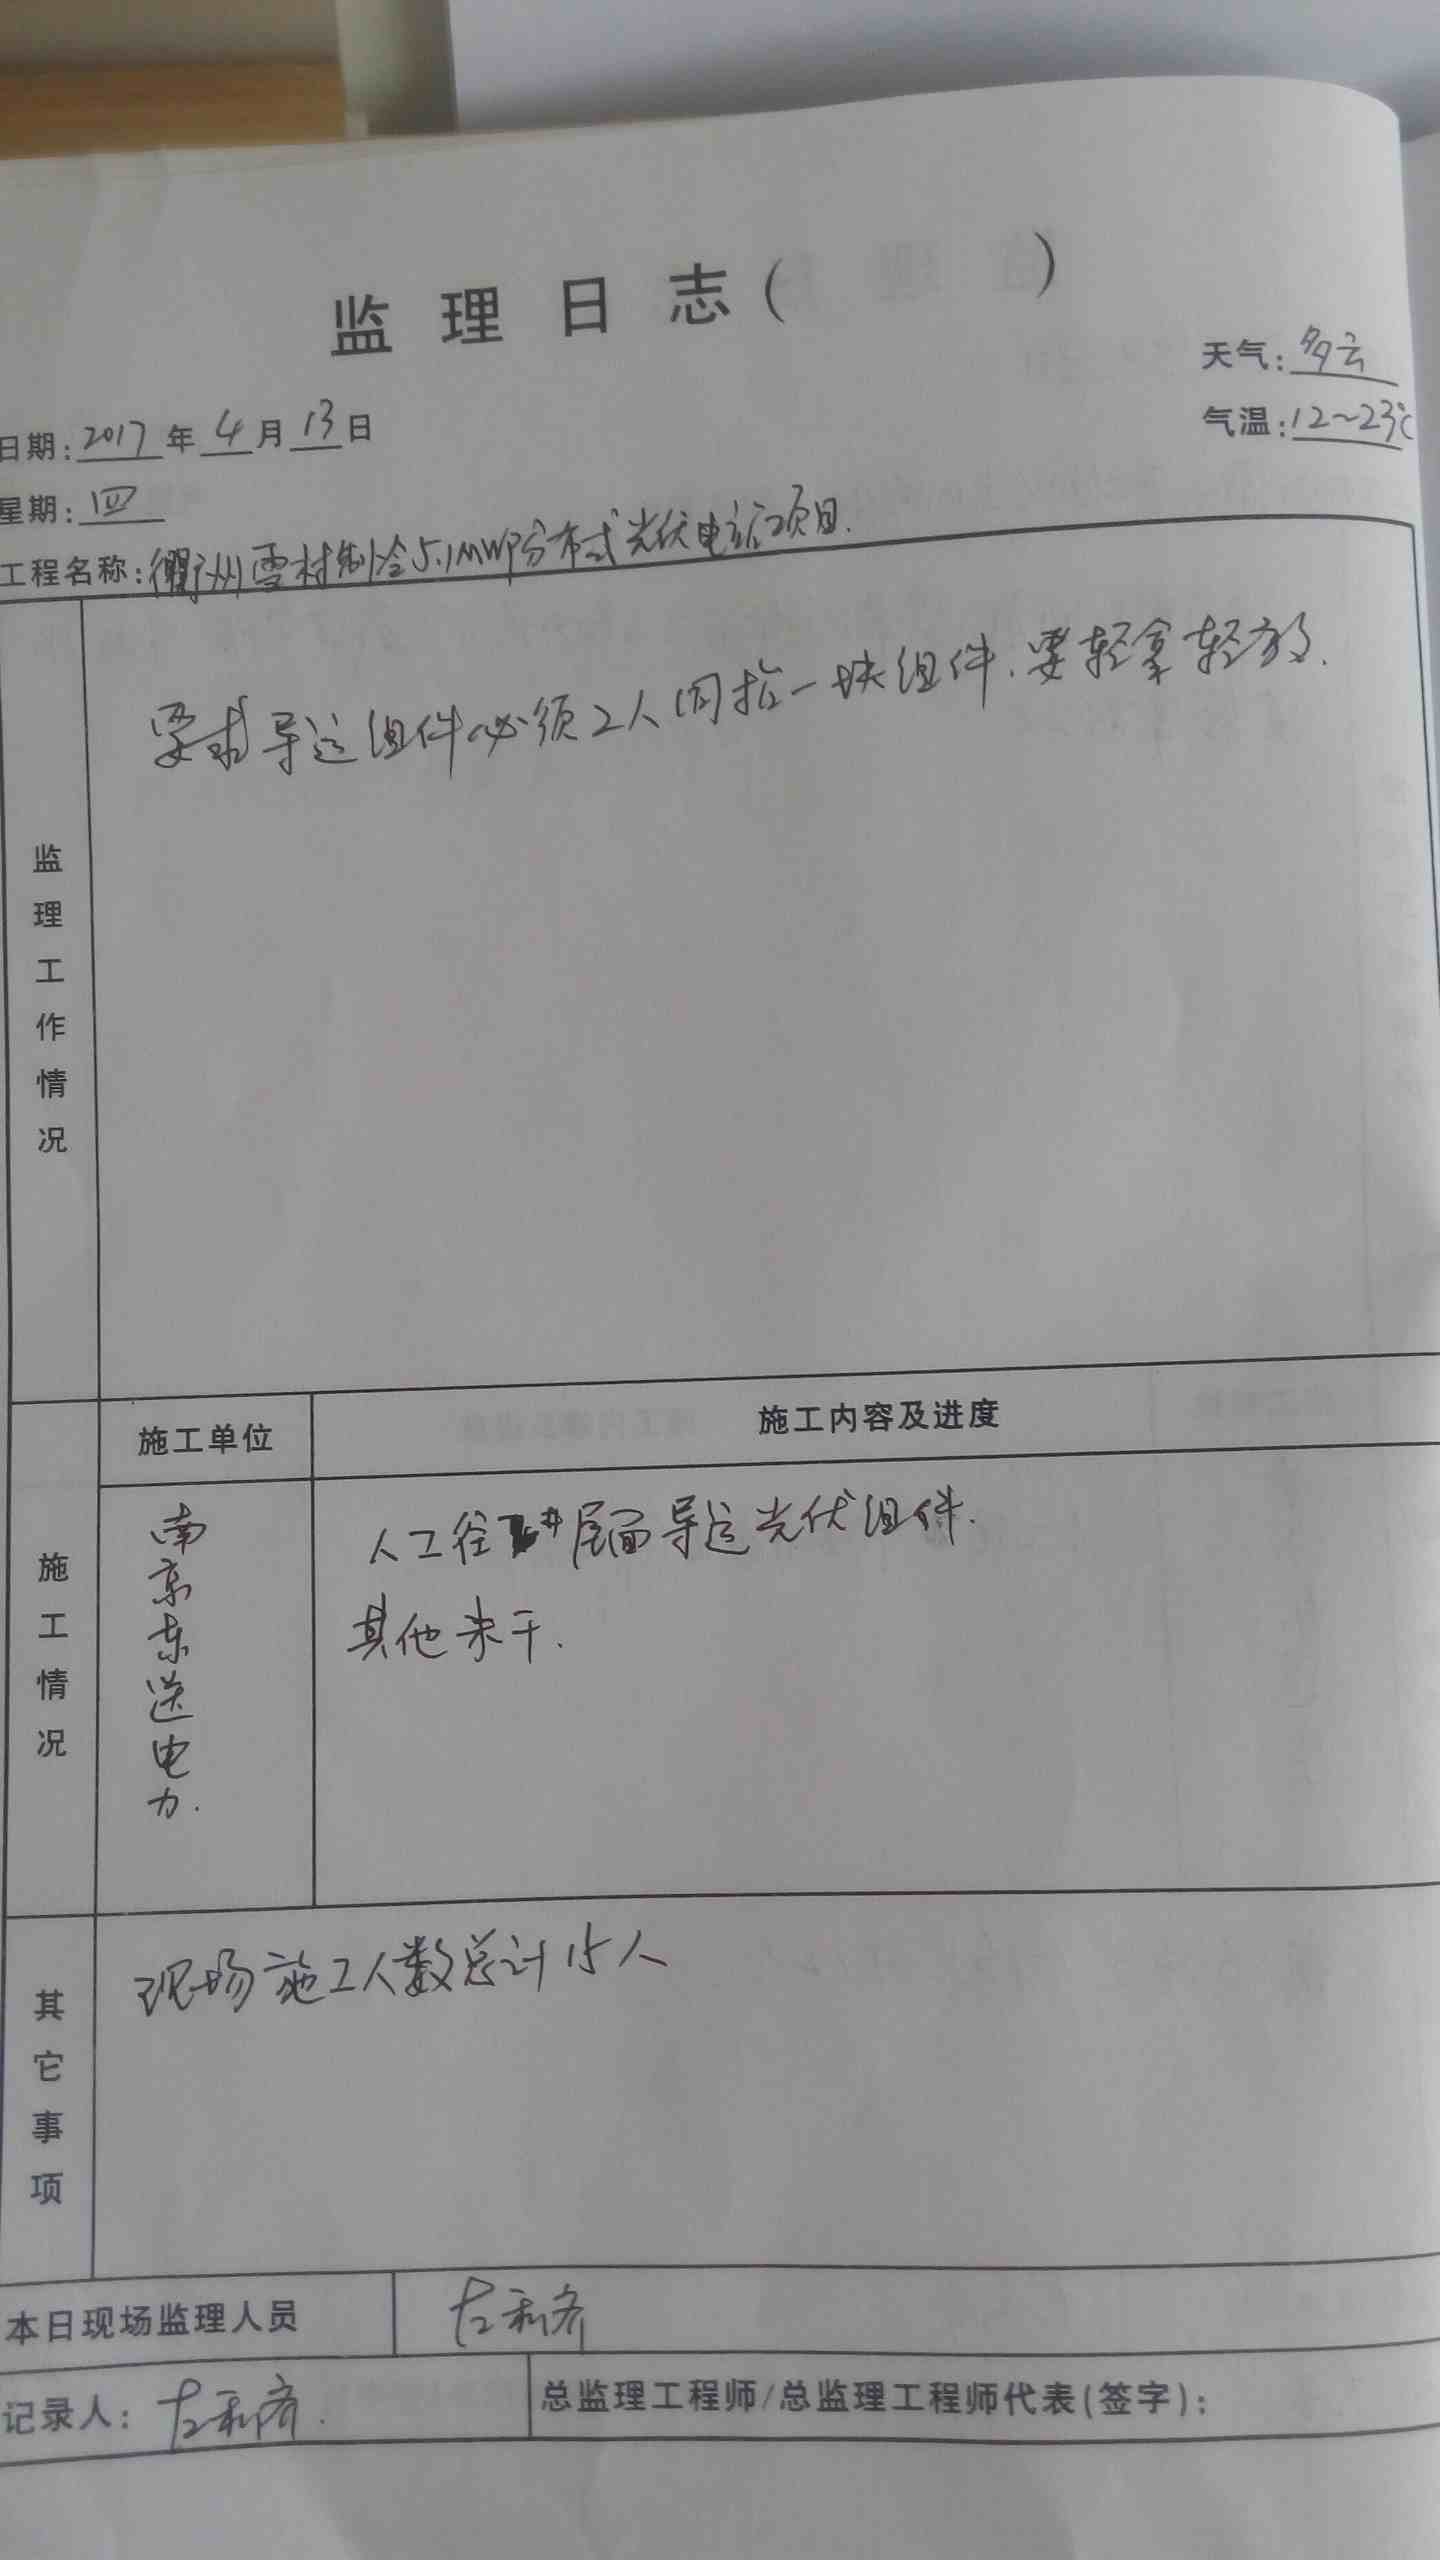 监理日志( )
天气: 多云
日期: 2017 年 4 月 13 日
气温: 12~23℃
星期: 四
工程名称: 衢州雪村制冷5.1MWP分布式光伏电站项目.
监理工作情况
要求导运组件必须2人同抬一块组件.要轻拿轻放.
施工情况
施工单位
施工内容及进度
南京东送电力.
人工在 屋面导运光伏组件.
其他未干.
其它事项
现场施工人数总计15人
本日现场监理人员
左利齐
记录人: 左利齐.
总监理工程师/总监理工程师代表(签字):